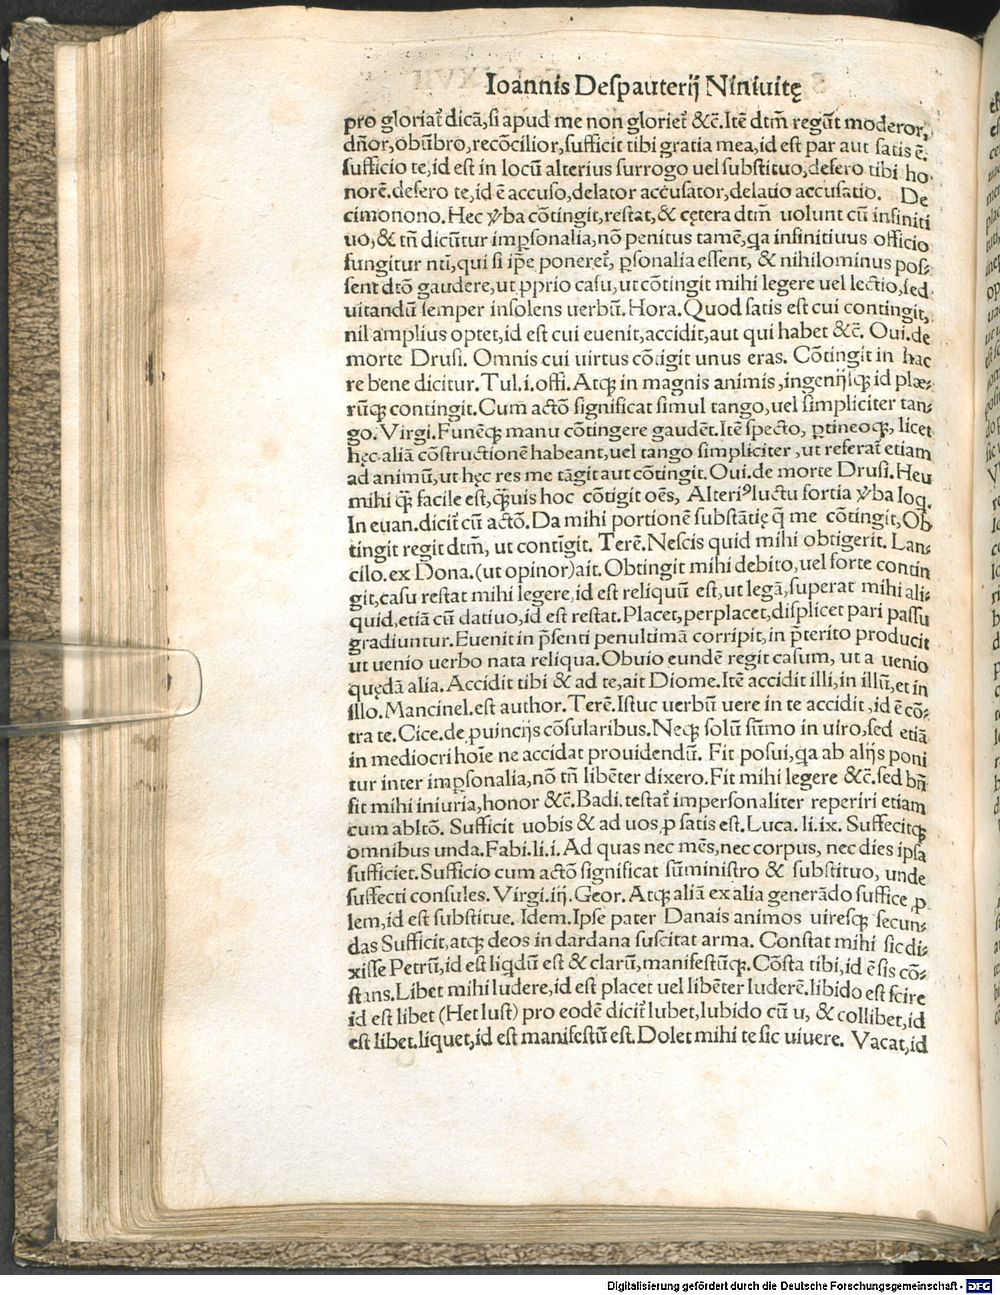 Ioannis Despauterij Niniuitę
pro gloriat᷑ dicã,si apud me non gloriet᷑ &c̃.Itẽ dtm̃ regũt moderor,
dñor,obũbro,recõcilior,sufficit tibi gratia mea,id est par aut satis ẽ.
sufficio te,id est in locũ alterius surrogo uel substituo,defero tibi ho-
norẽ.defero te,id ẽ accuso,delator accusator,delatio accusatio. De
cimonono.Hec ỽba cõtingit,restat,& cętera dtm̃ uolunt cũ infiniti
uo,& tñ dicũtur imꝑsonalia,nõ penitus tamẽ,qa infinitiuus officio
fungitur ntĩ,qui si ip̃e poneret᷑, ꝑsonalia essent, & nihilominus pos-
sent dtõ gaudere,ut ꝓprio casu,ut cõtingit mihi legere uel lectio,sed
uitandũ semper insolens uerbũ.Hora.Quod satis est cui contingit,
nil amplius optet,id est cui euenit,accidit,aut qui habet &c̃. Oui.de
morte Drusi. Omnis cui uirtus cõtigit unus eras. Cõtingit in hac
re bene dicitur.Tul.i.offi.Atqꝫ in magnis animis,ingenijsqꝫ id plæ-
rũqꝫ contingit.Cum actõ significat simul tango,uel simpliciter tan-
go.Virgi.Funẽqꝫ manu cõtingere gaudẽt.Itẽ specto, ꝑtineoqꝫ, licet
hęc aliã cõstructionẽ habeant,uel tango simpliciter,ut referat᷑ etiam
ad animũ,ut hęc res me tãgit aut cõtingit.Oui.de morte Drusi.Heu
mihi q̃ꝫ facile est,q̃ꝫuis hoc cõtigit oẽs, Alteriꝰ luctu fortia ỽba loq.
In euan.dicit᷑ cũ actõ.Da mihi portionẽ substãtię q̃ me cõtingit,Ob
tingit regit dtm̃, ut contĩgit. Terẽ.Nescis quid mihi obtigerit. Lan-
cilo.ex Dona.(ut opinor)ait.Obtingit mihi debito,uel forte contin
git,casu restat mihi legere,id est reliquũ est,ut legã,superat mihi ali-
quid,etiã cũ datiuo,id est restat.Placet,perplacet,displicet pari passu
gradiuntur.Euenit in p̃senti penultimã corripit,in p̃terito producit
ut uenio uerbo nata reliqua.Obuio eundẽ regit casum, ut a uenio
quędã alia.Accidit tibi & ad te,ait Diome.Itẽ accidit illi,in illũ,et in
illo.Mancinel.est author.Terẽ.Istuc uerbũ uere in te accidit,id ẽ cõ-
tra te.Cice.de ꝓuincijs cõsularibus.Neqꝫ solũ sũmo in uiro,sed etiã
in mediocri hoĩe ne accidat prouidendũ. Fit posui,qa ab alijs poni
tur inter imꝑsonalia,nõ tñ libẽter dixero.Fit mihi legere &c̃.sed bñ
fit mihi iniuria,honor &c̃.Badi.testat᷑ impersonaliter reperiri etiam
cum abltõ. Sufficit uobis & ad uos,ꝓ satis est.Luca. li.ix. Suffecitqꝫ
omnibus unda.Fabi.li.i.Ad quas nec mẽs,nec corpus, nec dies ipsa
sufficiet.Sufficio cum actõ significat sũministro & substituo, unde
suffecti consules. Virgi.iij.Geor.Atqꝫ aliã ex alia generãdo suffice ꝓ
lem,id est substitue. Idem.Ipse pater Danais animos uiresqꝫ secun-
das Sufficit,atqꝫ deos in dardana suscitat arma. Constat mihi sic di-
xisse Petrũ,id est liqdũ est & clarũ,manifestũqꝫ.Cõsta tibi,id ẽ sis cõ-
stans.Libet mihi ludere,id est placet uel libẽter luderẽ.libido est scire
id est libet (Het lust) pro eodẽ dicit᷑ lubet,lubido cũ u, & collibet,id
est libet.liquet,id est manifestũ est.Dolet mihi te sic uiuere. Vacat,id
Digitalisierung gefördert durch die Deutsche Forschungsgemeinschaft - DFG